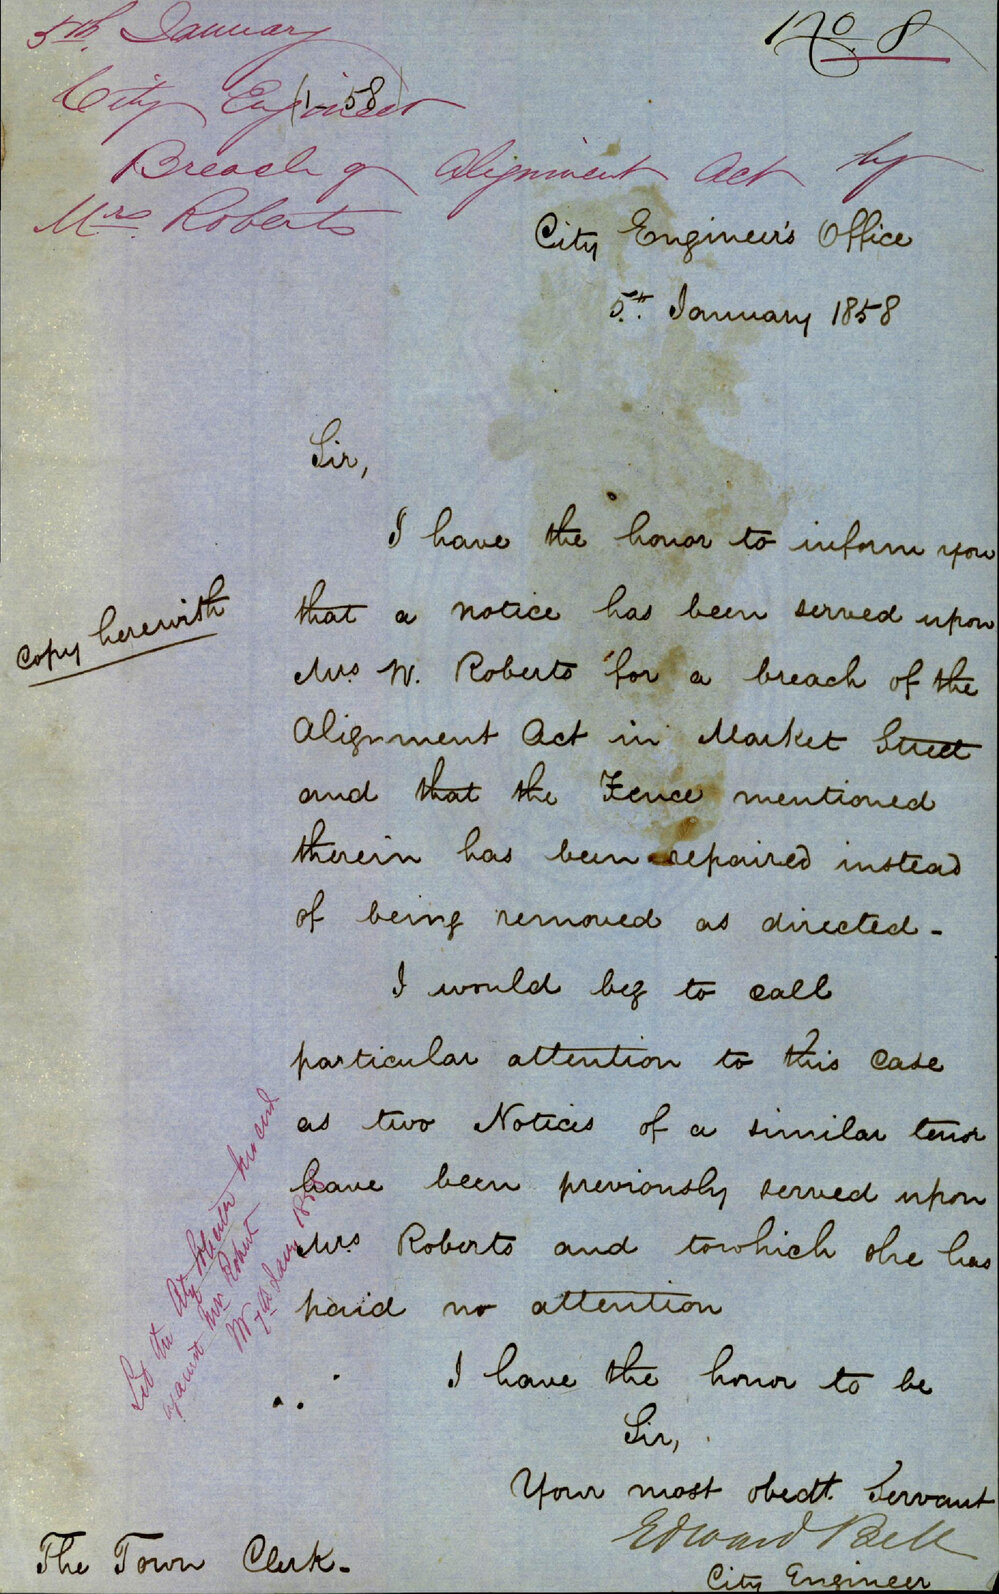 5th January
No 8
City Engineer
(1-58)
Breach of Alignment Act by
Mrs Roberts
City Engineer's Office
5th. January 1858
Sir,
I have the honor to inform you
that a notice has been served upon
Copy herewith
Mrs W. Roberts for a breach of the
Alignment Act in Market Street
and that the Fence mentioned
therein has been repaired instead
of being removed as directed -
I would beg to call
particular attention to this case
as two Notices of a similar tenor
have been previously served upon
Mrs Roberts and towhich she has
paid no attention
Let the City Solicitor proceed
against Mrs Robert
7th Jany 1858
I have the honor to be
Sir,
Your most obedt. Servant
Edward Bell
City Engineer
The Town Clerk -